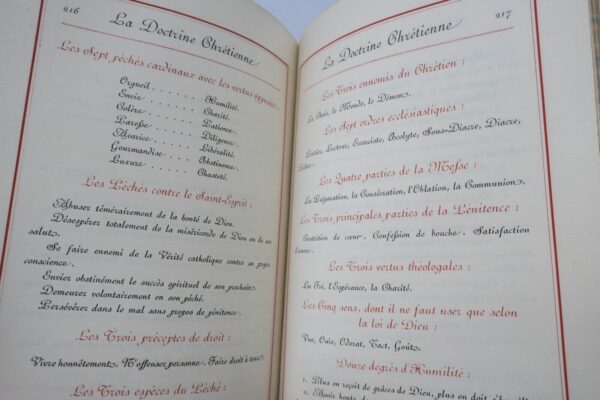 216
La Doctrine Chrétienne
Les Sept péchés cardinaux avec les vertus
Orgueil . . . . . . Humilité.
Envie . . . . . . Charité.
Colère . . . . . . Patience.
Paresse . . . . . . Diligence.
Avarice . . . . . . Libéralité.
Gourmandise . . . . . Abstinence.
Luxure . . . . . . Chasteté.
Les Péchés contre le Saint-Esprit :
Abuser témérairement de la bonté de Dieu.
Désespérer totalement de la miséricorde de Dieu ou de son
salut.
Se faire ennemi de la Vérité catholique contre sa propre
conscience.
Envier obstinément le succès spirituel de son prochain.
Demeurer volontairement en son péché.
Persévérer dans le mal sans propos de pénitence.
Les Trois préceptes de droit :
Vivre honnêtement. N'offenser personne. Faire droit à tous.
Les Trois espèces du Péché :
217
La Doctrine Chrétienne
Les Trois ennemis du Chrétien :
La Chair, le Monde, le Démon.
Les Sept ordres ecclésiastiques :
Lecteur, Exorciste, Acolyte, Sous-Diacre, Diacre,
Les Quatre parties de la Messe :
La Préparation, la Consécration, l'Oblation, la Communion.
Les Trois principales parties de la Pénitence :
Contrition de cœur. Confession de bouche. Satisfaction
Les Trois vertus théologales :
La Foi, l'Espérance, la Charité.
Les Cinq sens, dont il ne faut user que selon
la loi de Dieu :
Vue, Ouïe, Odorat, Tact, Goût.
Douze degrés d'Humilité :
1. Plus on reçoit de grâces de Dieu, plus on doit